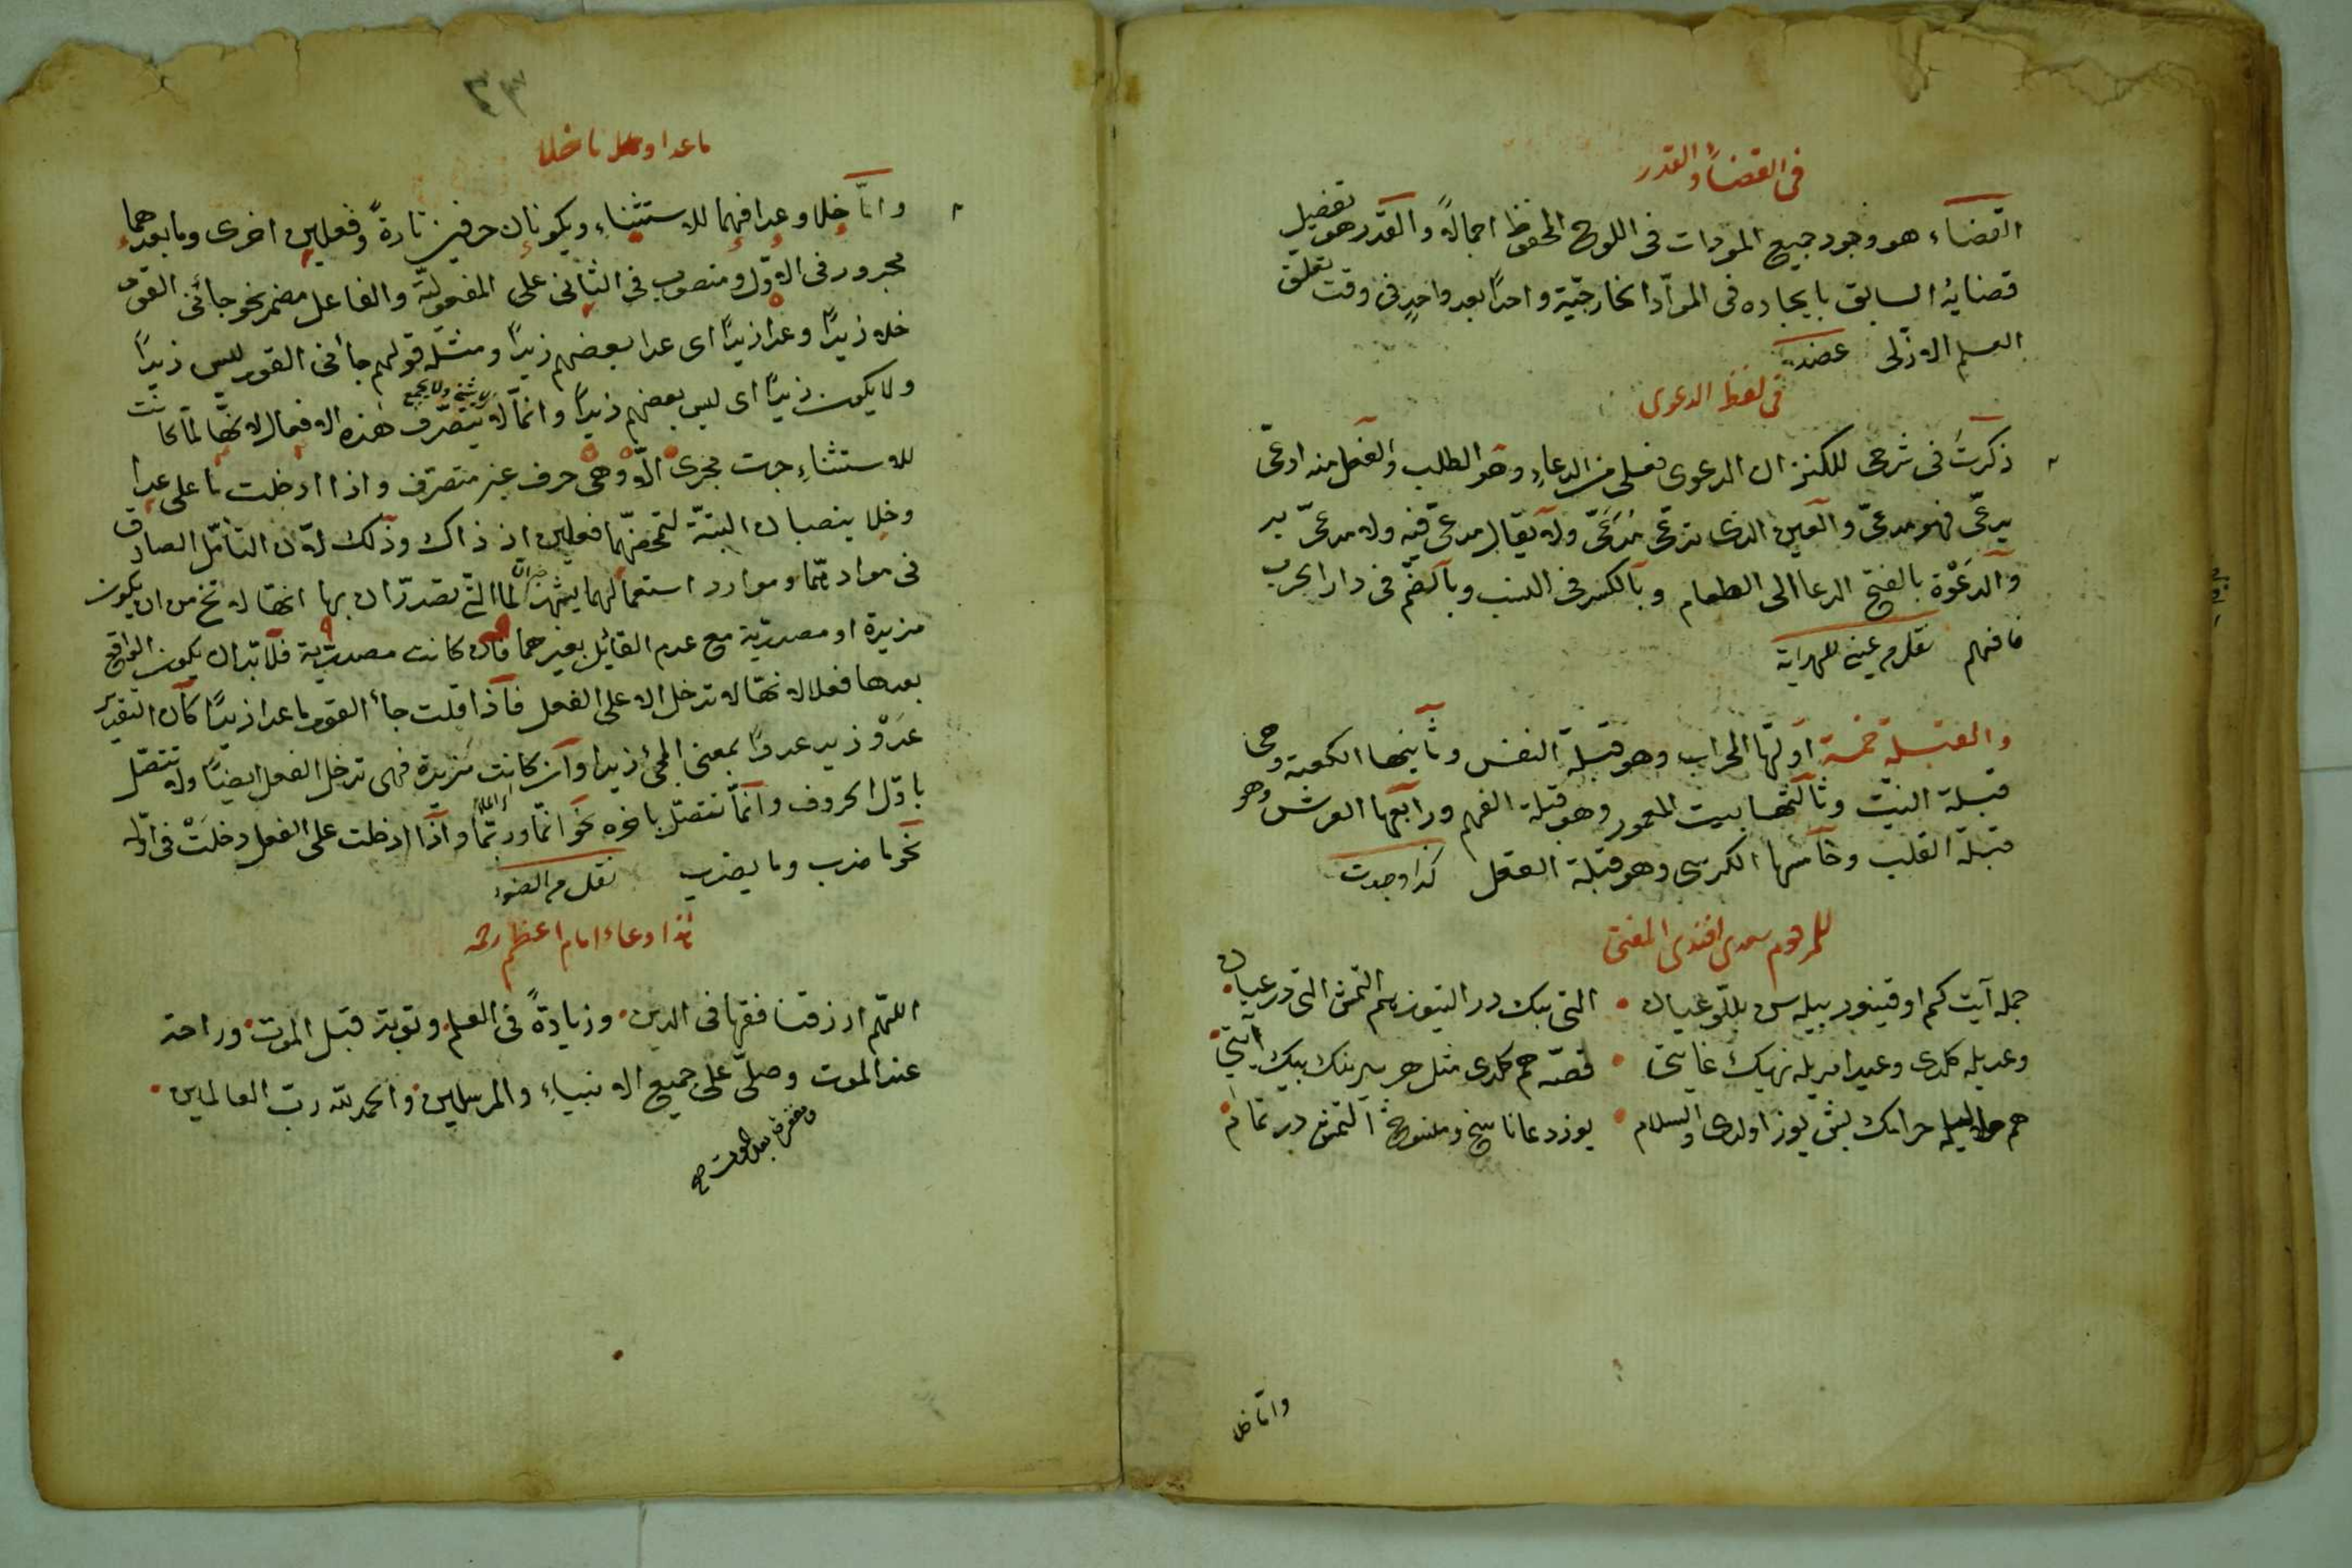 فى القضاء والقدر
القضاء هو وجود جميع الموجودات فى اللوح المحفوظ اجمالا والقدر هو تفصيل
قضايه السابق بايجاده فى المواد الخارجيّة واحدًا بعد واحدٍ فى وقت تعلق
العلم الازلى عضد
فى لفظ الدعوى
ذكرت فى شرحى للكنز ان الدعوى فعلى من الدعاء وهو الطلب والفعل منه ادعى
يدعى فهو مدعى والعين الذى تدعى مُدَّعَى ولا يقال مدعى فيه ولا مدعى به
والدَعْوَة بالفتح الدعا الى الطعام وبالكسر فى النسب وبالضم فى دار الحرب
فافهم نقل من عينى للهداية
والقبلة خمسة اولها المحراب وهو قبلة النفس وثانيها الكعبة وهى
قبلة النيّت وثالثها بيت المعمور وهو قبلة الفهم ورابعها العرش وهو
قبلة القلب وخامسها الكرسى وهو قبلة العقل كذا وجدت
للمرحوم سعدى افندى المفتى
جمله آيت كم اوقينور بيله س بللو عيان • التى بيك در التيوز هم التمش التى در عيان
وعديله كلدى وعيد امريله نهيك غايتى • قصّه هم كلدى مثل هر بيرينك بيك آيتى
هم حلاليله حرامك بش يوز اولدى والسلام • يوز دعا ناسخ ومنسوخ التمش در تمام
واما خلا
٣٣
ما عدا و ما خلا
واما خلا وعدا فهما للاستثناء ويكونان حرفين تارةً وفعلين اخرى وما بعدهما
مجرور فى الاوّل ومنصوب فى الثانى على المفعوليّة والفاعل مضمر نحو جائنى القوم
خلا زيدًا وعدا زيدًا اى عدا بعضهم زيدًا ومثله قولهم جائنى القوم ليس زيدًا
ولا يكون زيدًا اى ليس بعضهم زيدًا وانما لا يتصرّف لا يثنى ولا يجمع هذه الافعال لانها لما كانت
للاستثناء جرت مجرى الّا وهى حرف غير متصرف واذا ادخلت ما على عدا
وخلا ينصبان البتّة لتمحضهما فعلين اذ ذاك وذلك لان التأمل الصادق
فى مواد ما وموارد استعمالهما يشهد ان لما التى تصدّران بها انها لا تخ من ان يكون
مزيدة او مصدريّة مع عدم القائل بغيرهما فان كانت مصدريّة فلا بد ان يكون الواقع
بعدها فعلا لانها لا تدخل الا على الفعل فاذا قلت جأ القوم ما عدا زيدًا كان التقدير
عَدْوَ زيد عدوًا بمعنى المجئ زيدا وان كانت مزيدة فهى تدخل الفعل ايضًا ولا تتصل
باوّل الحروف وانما تتصل باخره نحو انما وربما واذا ادخلت على الفعل دخلَتْ فى اوّله
نحو ما ضرب وما يضرب نقل من الضوء
هذا دعاء امام اعظم رحمه
اللهم ارزقنا فقها فى الدين • وزيادةً فى العلم • وتوبة قبل الموت • وراحة
عند الموت وصلّى على جميع الانبياء والمرسلين • والحمد لله ربّ العالمين •
ومغفرة بعد الموت صح